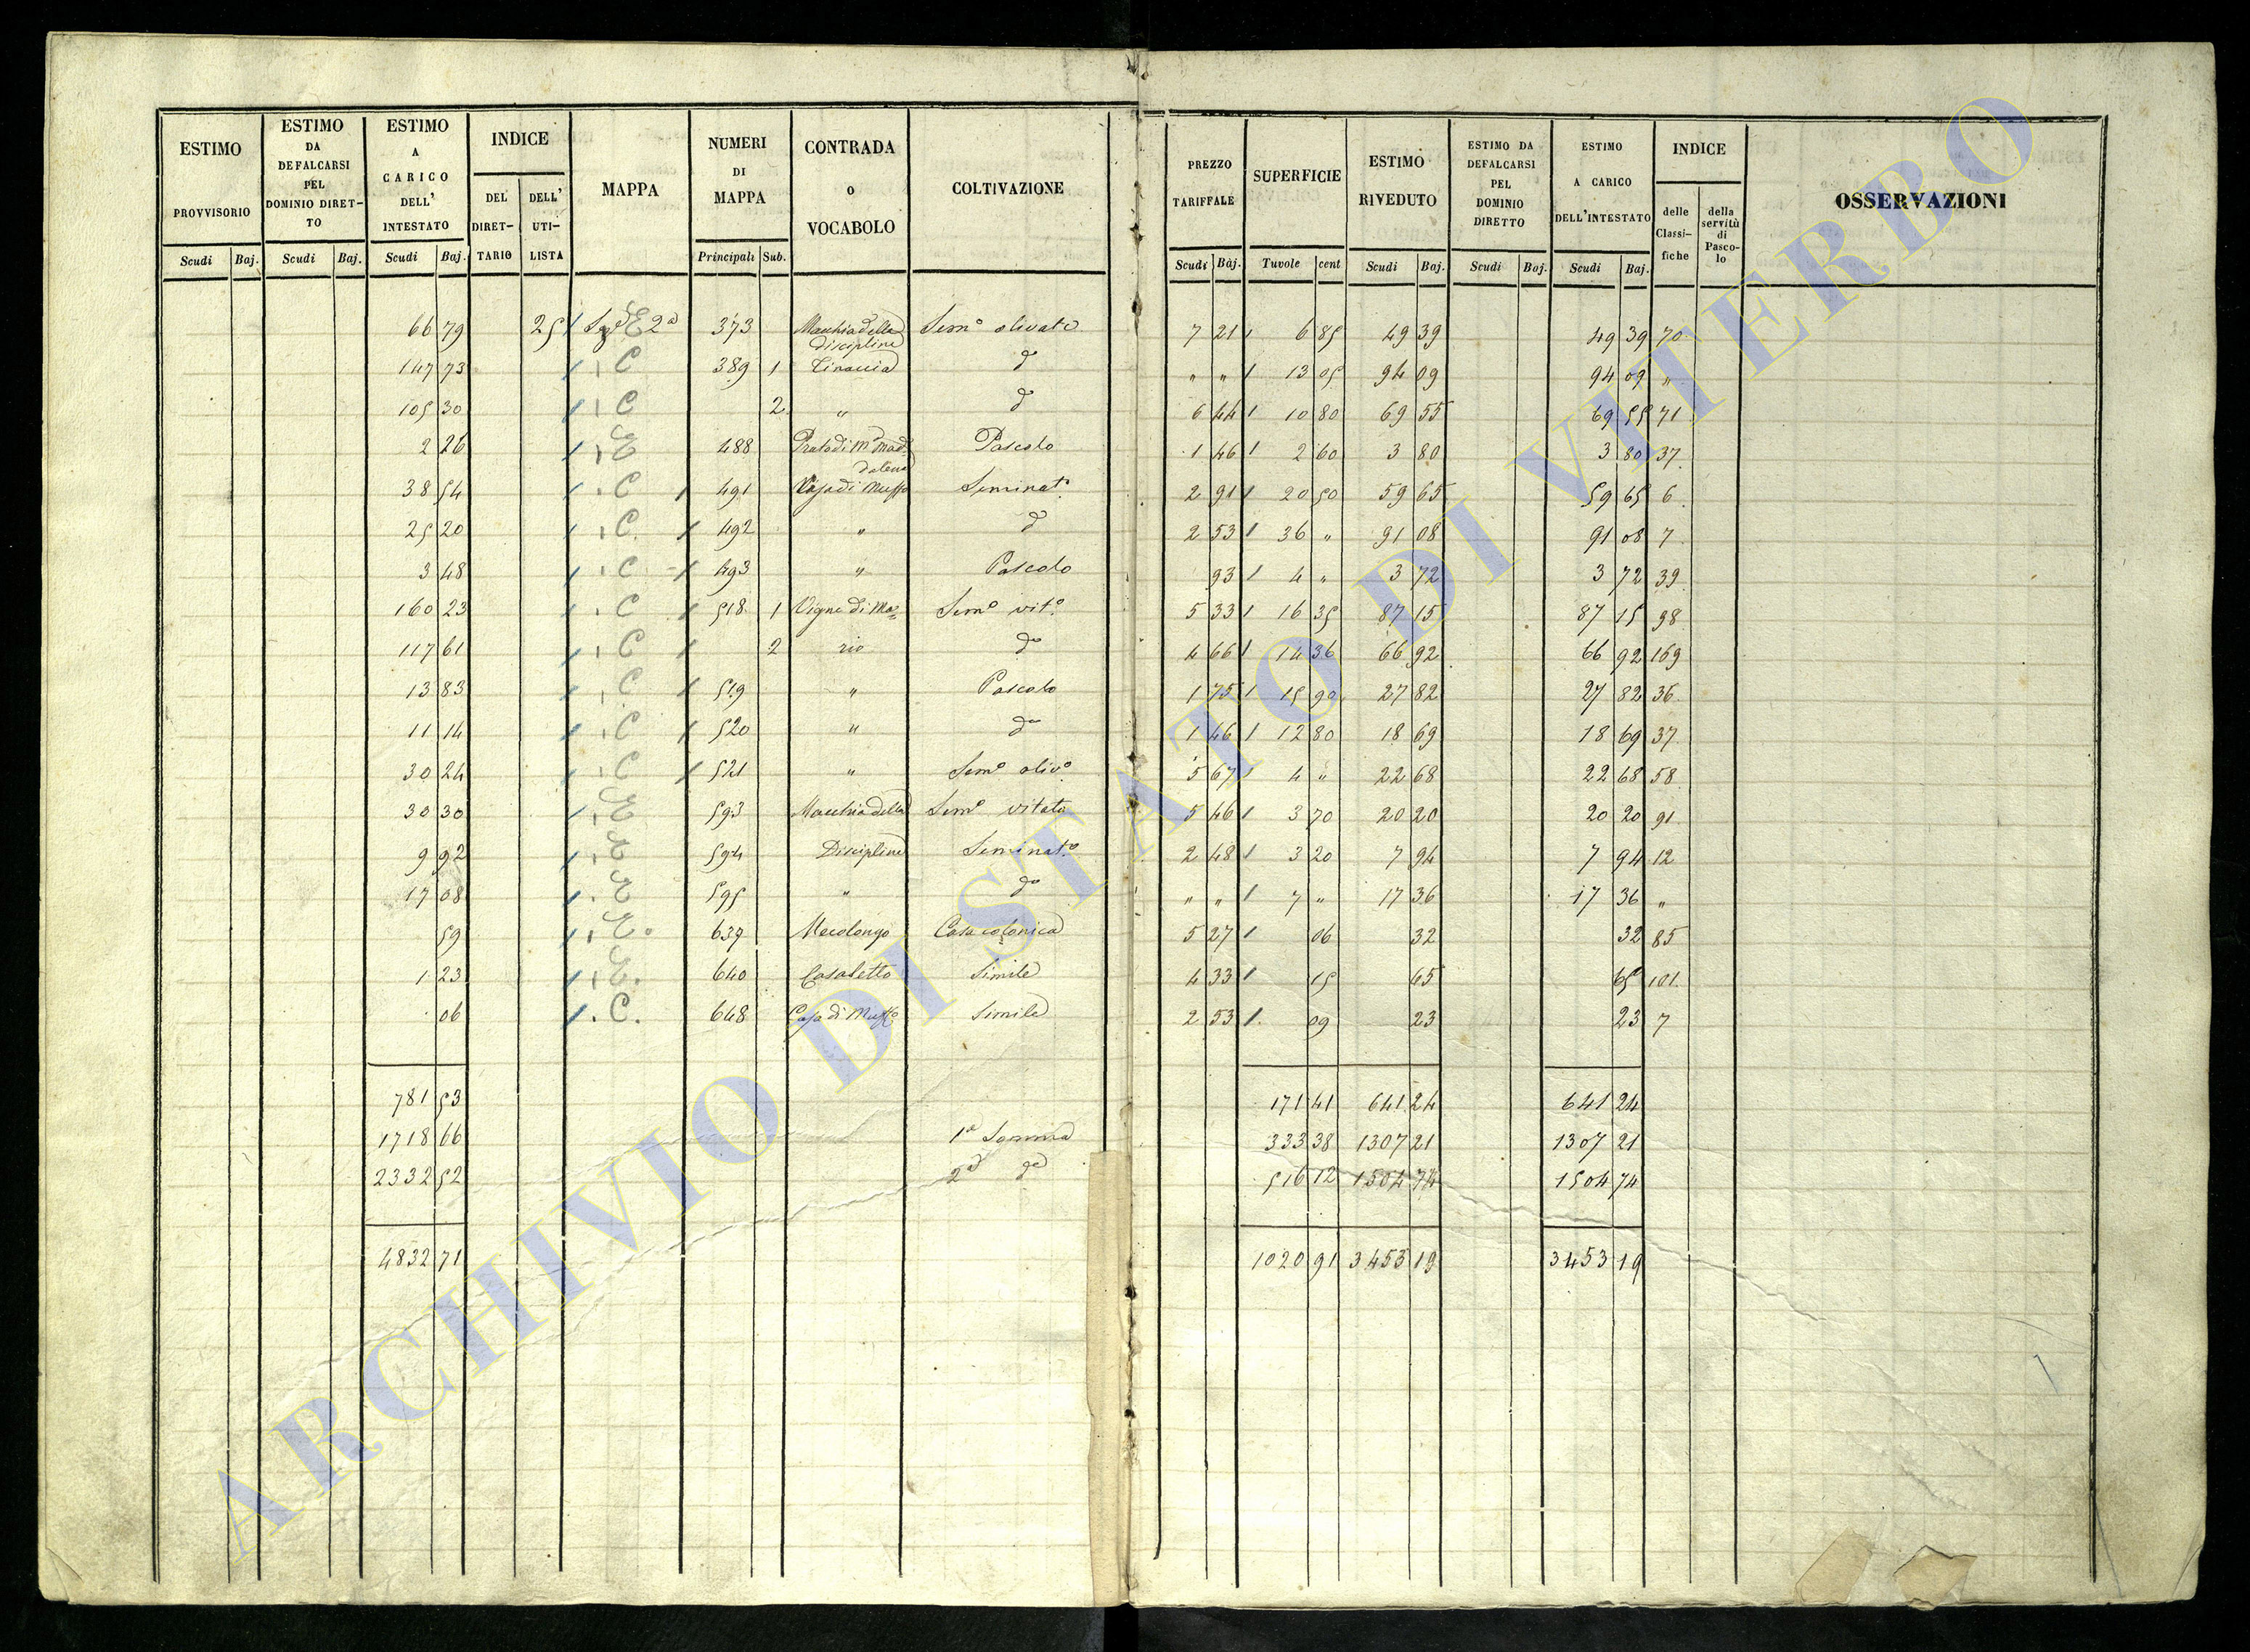 ESTIMO PROVVISORIO Scudi Baj.
ESTIMO DA DEFALCARSI PEL DOMINIO DIRET- TO Scudi Baj.
ESTIMO A CARICO DELL' INTESTATO Scudi Baj.
INDICE DEL DIRET- TARIO DELL' UTI- LISTA
MAPPA
NUMERI DI MAPPA Principali Sub.
CONTRADA o VOCABOLO
COLTIVAZIONE
PREZZO TARIFFALE Scudi Baj.
SUPERFICIE Tavole cent
ESTIMO RIVEDUTO Scudi Baj.
ESTIMO DA DEFALCARSI PEL DOMINIO DIRETTO Scudi Baj.
ESTIMO A CARICO DELL'INTESTATO Scudi Baj.
INDICE delle Classi- fiche della servitù di Pasco- lo
OSSERVAZIONI
66 79 25 E 2ª 373 Macchia della Discipline Semº olivato 7 21 6 85 49 39 49 39 70
147 73 C 389 1 Tinaccia d 〃 〃 13 05 94 09 94 09 〃
105 30 C 2 〃 d 6 44 10 80 69 55 69 55 71
2 26 E 488 Prato di Mª Mad dalena Pascolo 1 46 2 60 3 80 3 80 37
38 54 C 491 Casa di Muffo Seminatº 2 91 20 50 59 65 59 65 6
25 20 C. 492 〃 d 2 53 36 〃 91 08 91 08 7
3 48 C 493 〃 Pascolo 93 4 〃 3 72 3 72 39
160 23 C 518 1 Vigne di Ma= Semº vitº 5 33 16 35 87 15 87 15 98
117 61 C 2 rio dº 4 66 14 36 66 92 66 92 169
13 83 C 519 〃 Pascolo 1 75 15 90 27 82 27 82 36
11 14 C 520 〃 dº 1 46 12 80 18 69 18 69 37
30 24 C 521 〃 Semº olivº 5 67 4 〃 22 68 22 68 58
30 30 E 593 Macchia della Semº vitato 5 46 3 70 20 20 20 20 91
9 92 E 594 Discipline Seminatº 2 48 3 20 7 94 7 94 12
17 08 E 595 〃 dº 〃 〃 7 〃 17 36 17 36 〃
59 E 639 Casa colonica 5 27 06 32 32 85
1 23 E 640 Casaletto Simile 4 33 15 65 65 101
06 C. 648 Casa di Muffo Simile 2 53 09 23 23 7
781 53 171 41 641 24 641 24
1718 66 1ª Somma 333 38 1307 21 1307 21
2332 52 2ª dª 516 12 1504 74 1504 74
4832 71 1020 91 3453 19 3453 19
ARCHIVIO DI STATO DI VITERBO